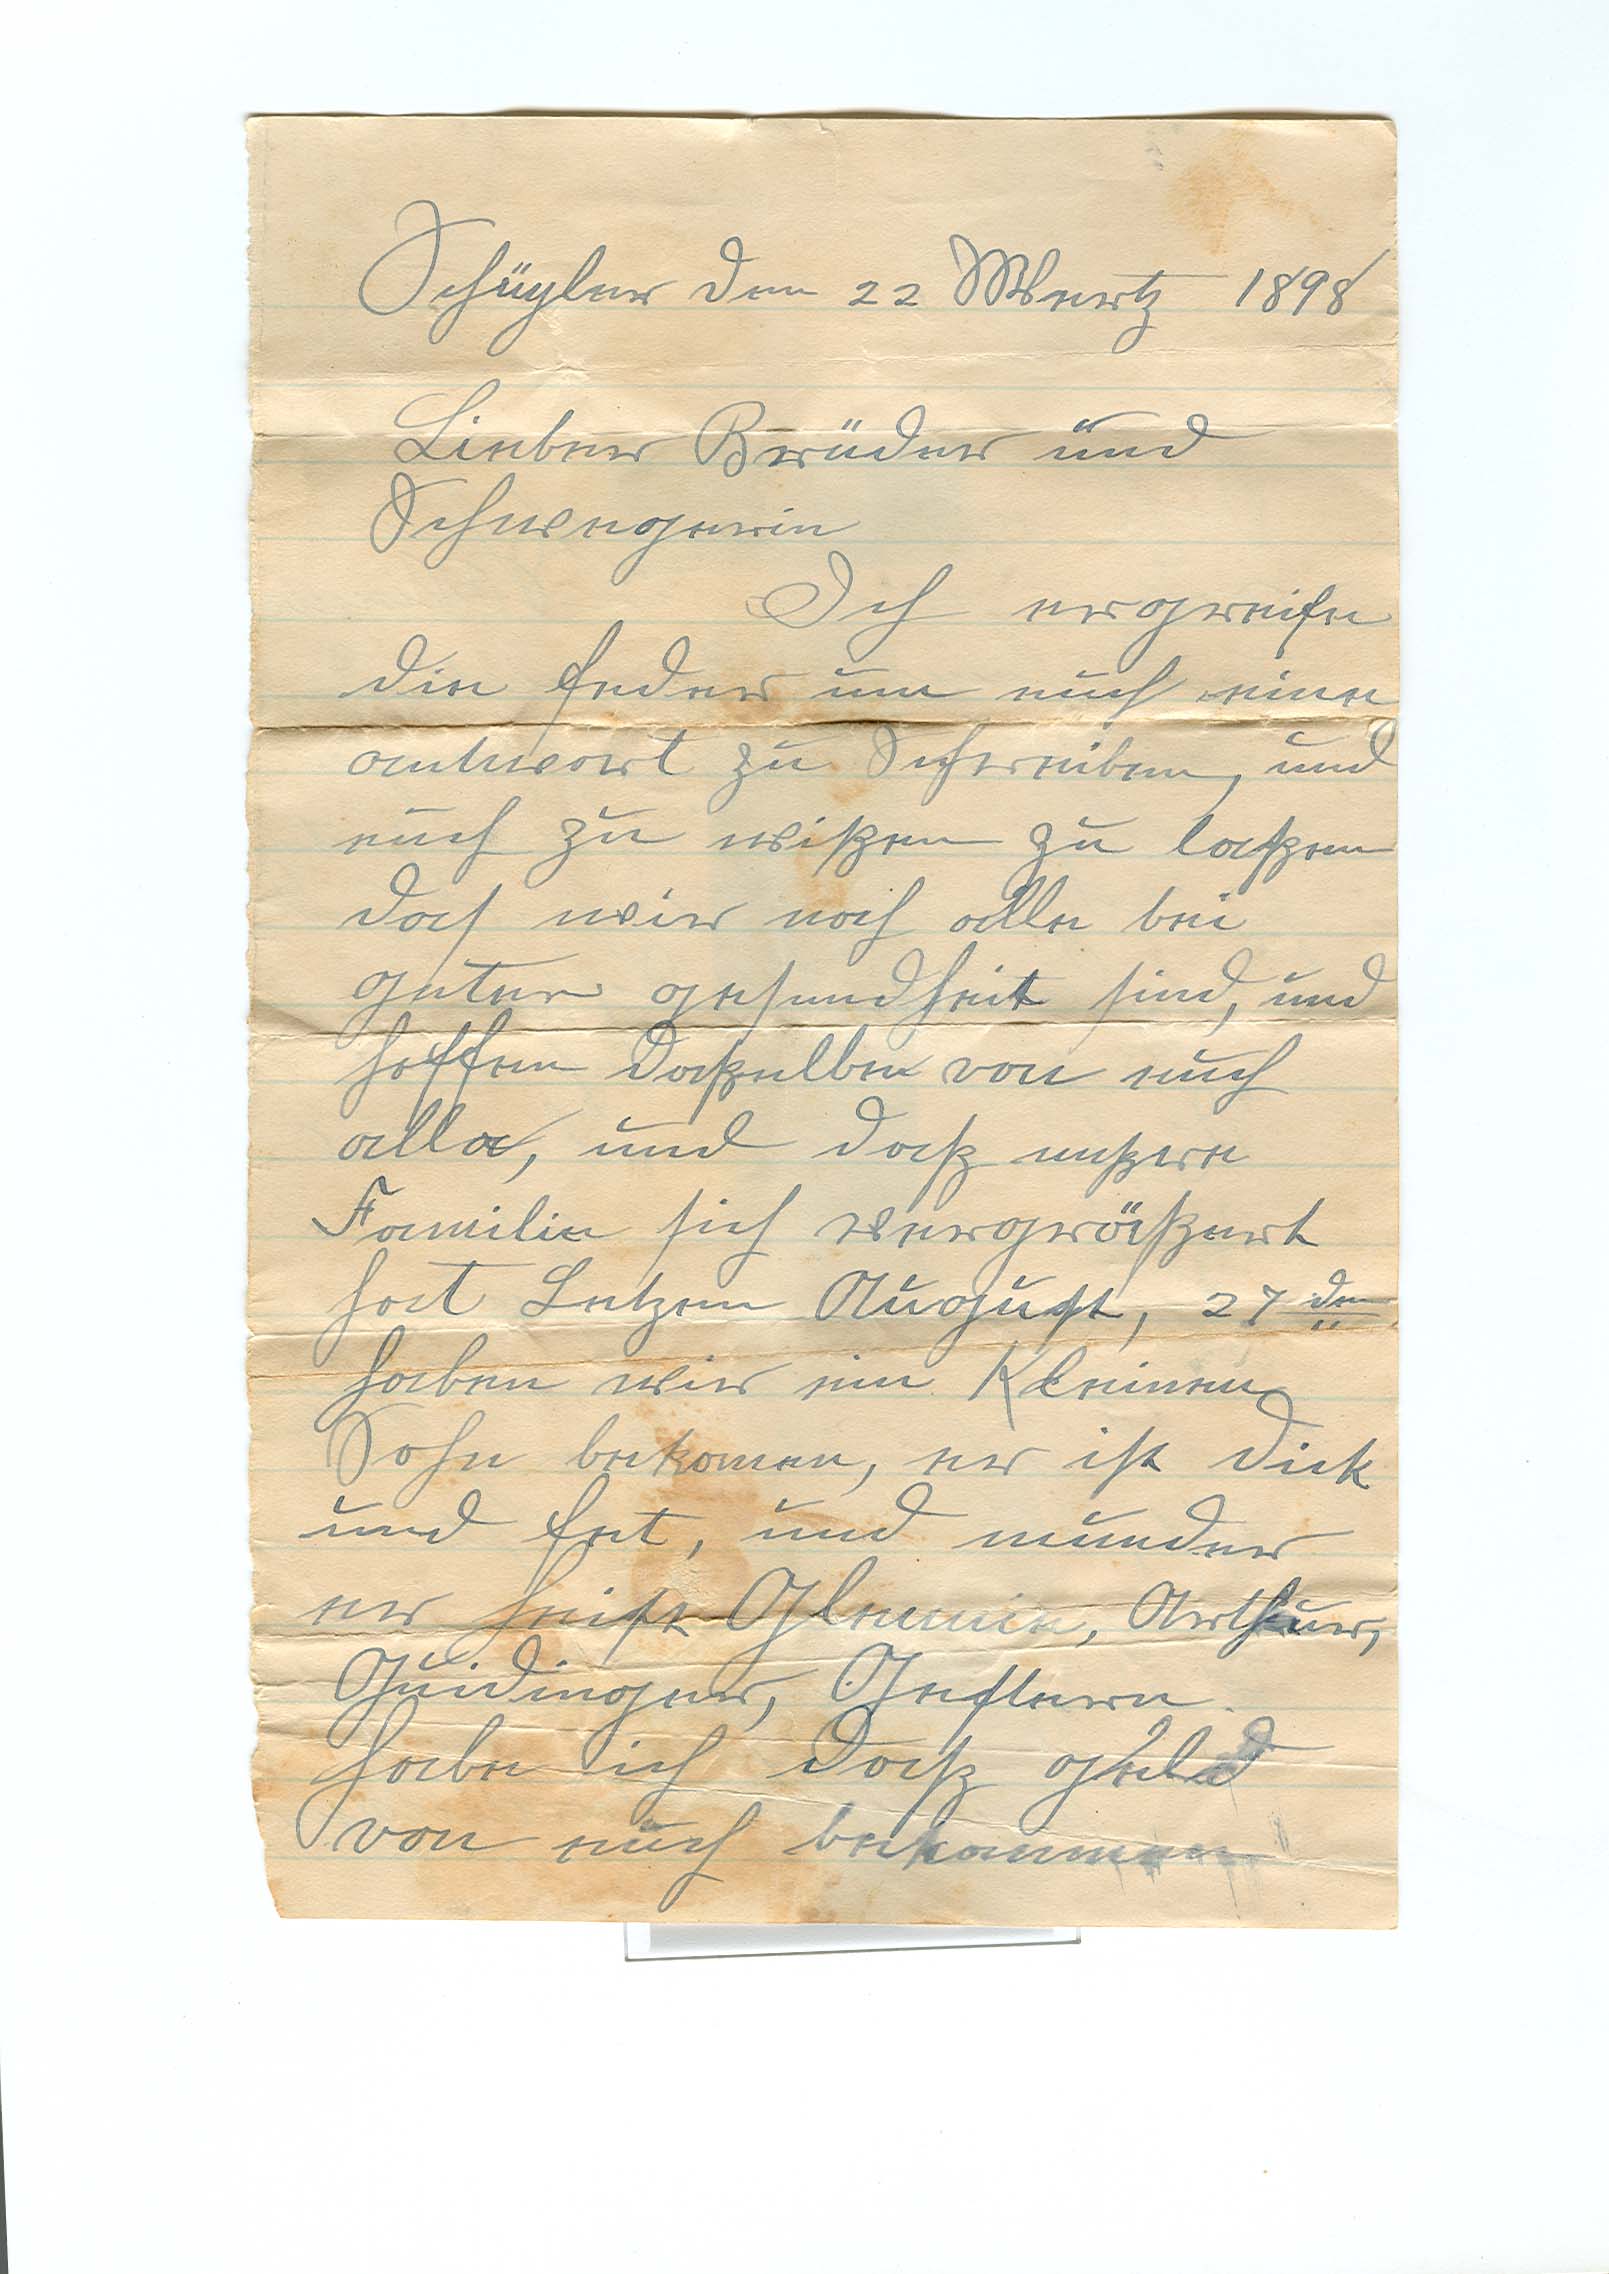 Schüyler den 22 Mertz 1898
Lieber Brüder und
Schwegerin
Ich ergreife
die feder um euch eine
antwort zu Schreiben, und
euch zu wißen zu laßen
das wir noch alle bei
guter gesundheit sind, und
hoffen daßelbe von euch
alle, und daß unßere
Familie sich vergröißert
hat Letzen August, 27 den
haben wir ein Kleinen
Sohn bekomen, er ist dick
und fet, und munder
er heist Glennie, Arthur,
Guidinger, Gestern
habe ich daß geld
von euch bekommen